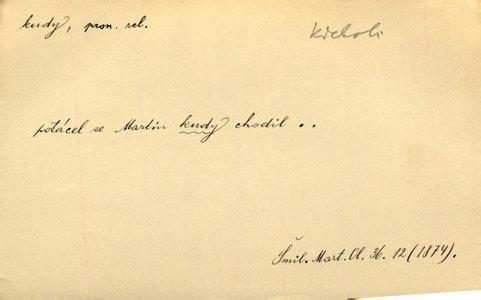 kudy, pron. rel.
potácel se Martin kudy chodil ..
Šmil. Mart. Ol. 36. 12 (1874).